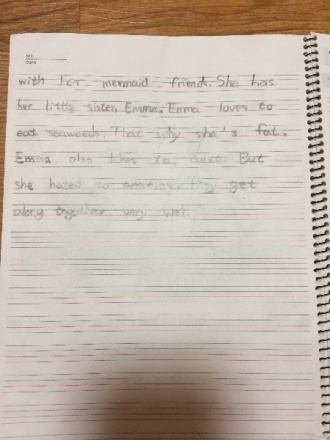 with her mermaid friends. She has
her little sister Emma. Emma loves to
eat seaweeds. That why she's fat.
Emma also likes to dance. But
she hates to exercise. They get
along together very well.